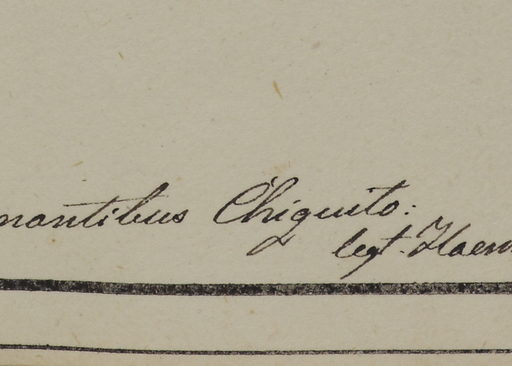 mantibus Chiquito:
legt. Haen